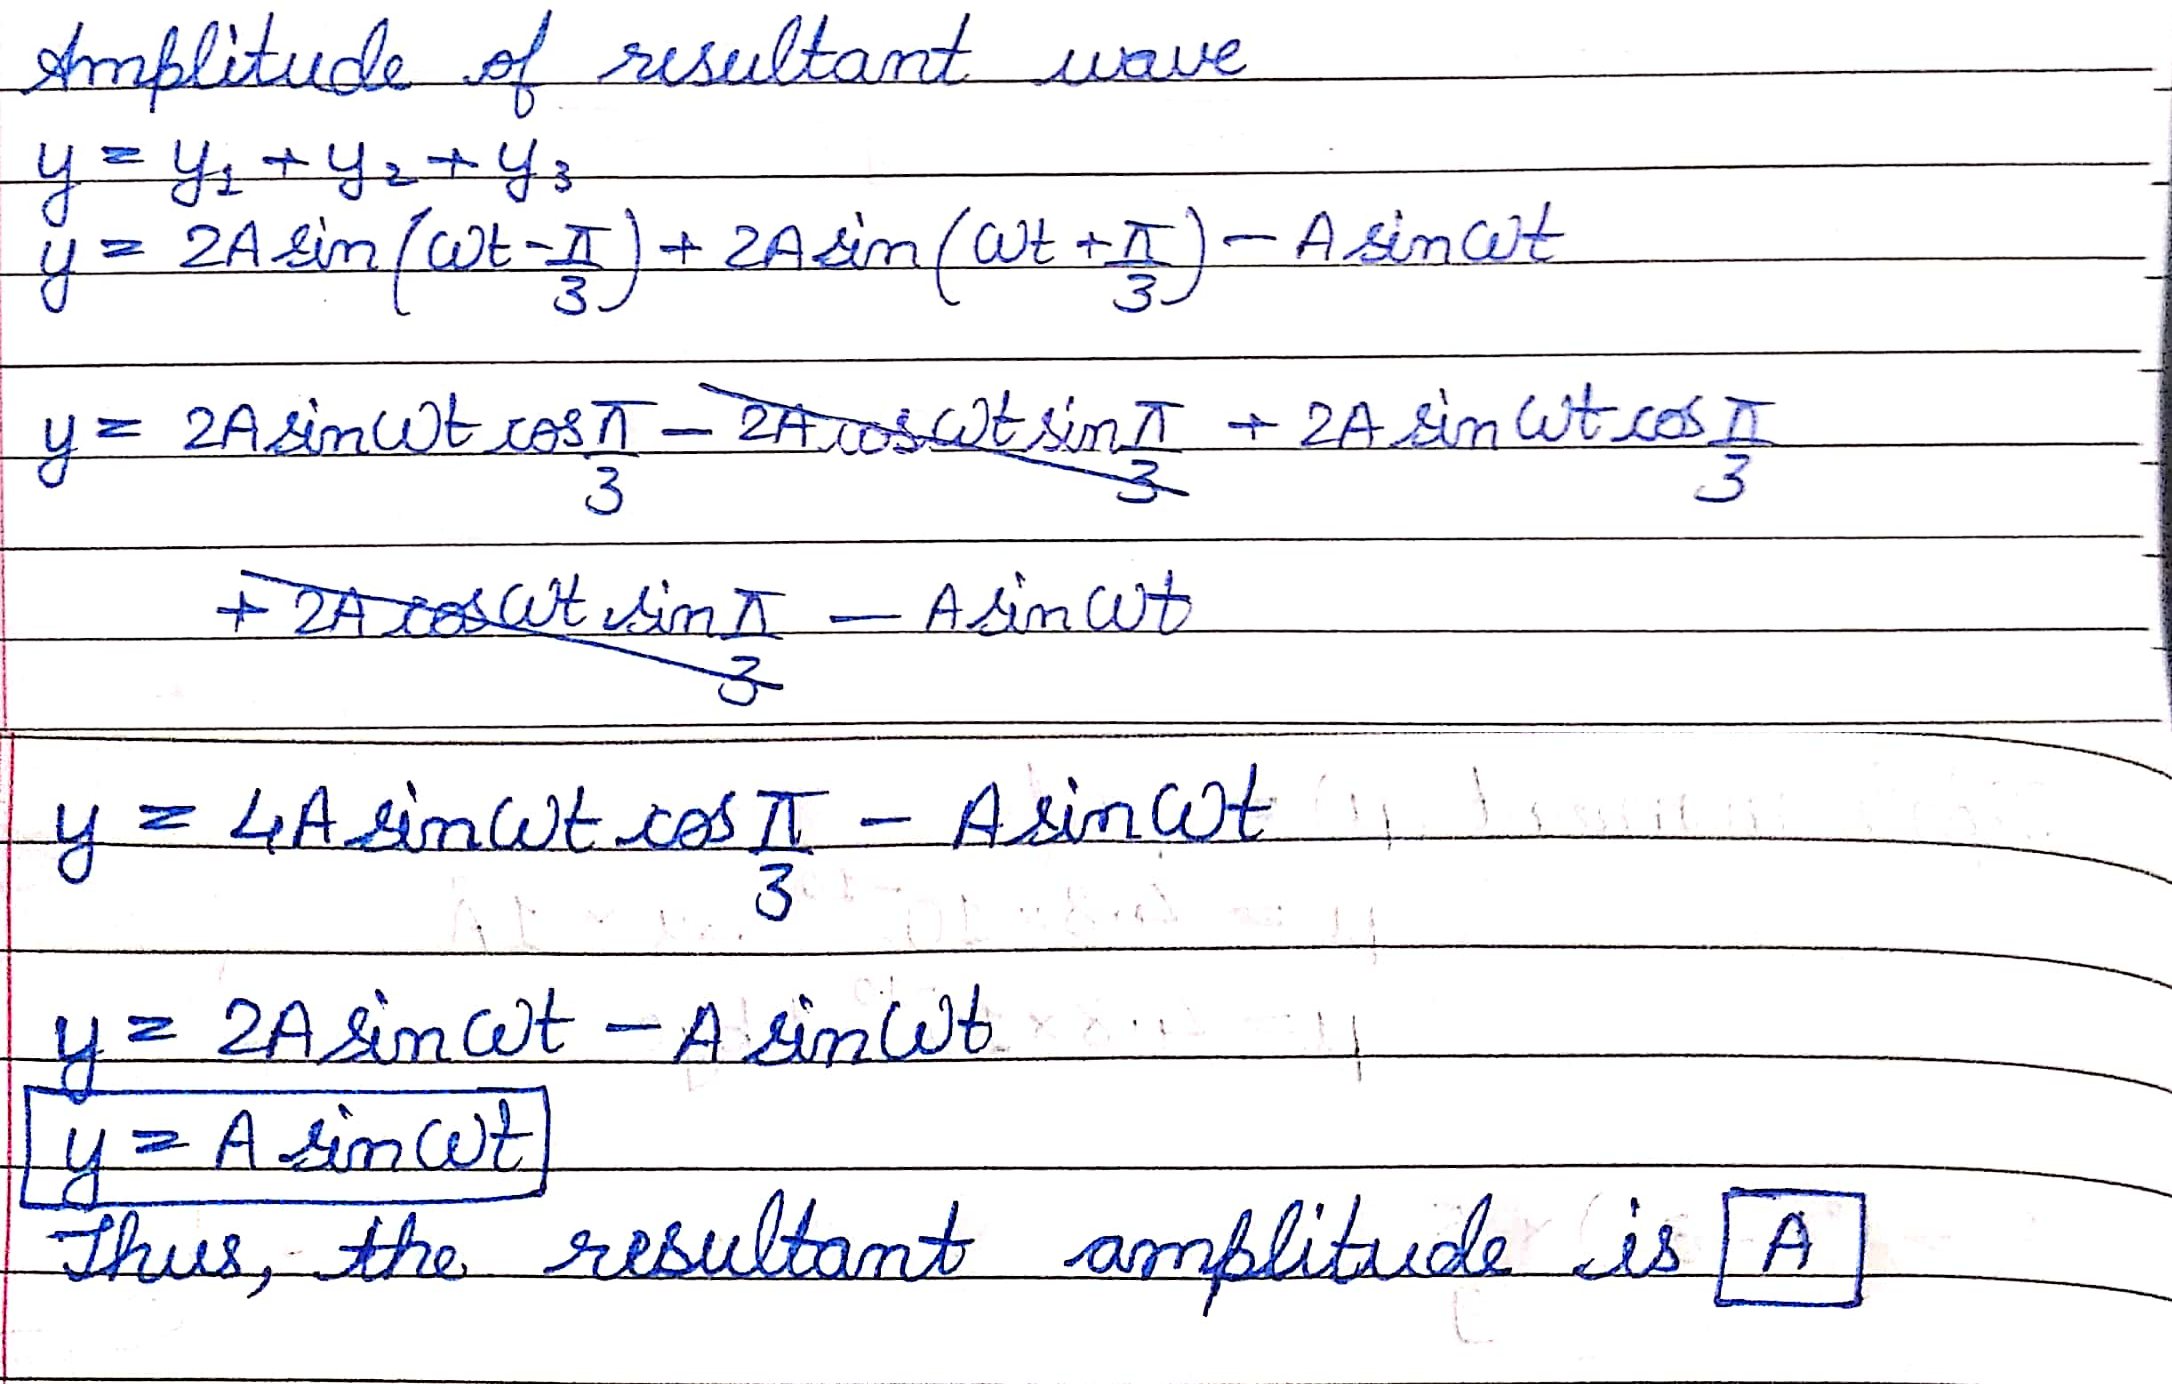 Amplitude of resultant wave
y = y₁ + y₂ + y₃
y = 2A sin(ωt - π/3) + 2A sin(ωt + π/3) - A sin ωt
y = 2A sin ωt cos π/3 - 2A cos ωt sin π/3 + 2A sin ωt cos π/3
+ 2A cos ωt sin π/3 - A sin ωt
y = 4A sin ωt cos π/3 - A sin ωt
y = 2A sin ωt - A sin ωt
y = A sin ωt
Thus, the resultant amplitude is A